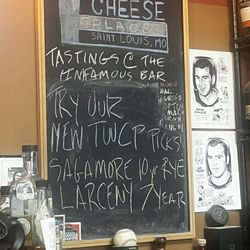 CHEESE
PLACE
SAINT LOUIS, MO
TASTINGS @ THE
INFAMOUS BAR
TRY OUR
NEW TWCP PICKS!
SAGAMORE 10yr RYE
LARCENY 7 YEAR